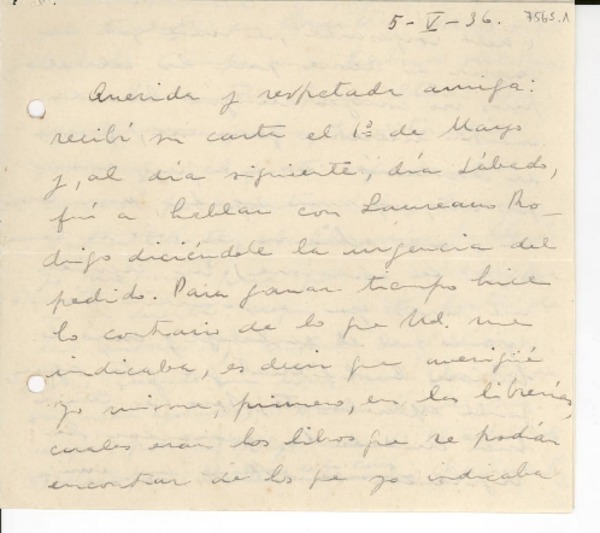 5-V-36. 7565.1
Querida y respetada amiga:
recibí su carta el 1º de Mayo
y, al día siguiente, día Sábado,
fuí a hablar con Laureano Ro-
drigo diciéndole la urgencia del
pedido. Para ganar tiempo hice
lo contrario de lo que Ud. me
indicaba, es decir que averigüé
yo misma, primero, en las librerías,
cuales eran los libros que se podían
encontrar de los que yo indicaba